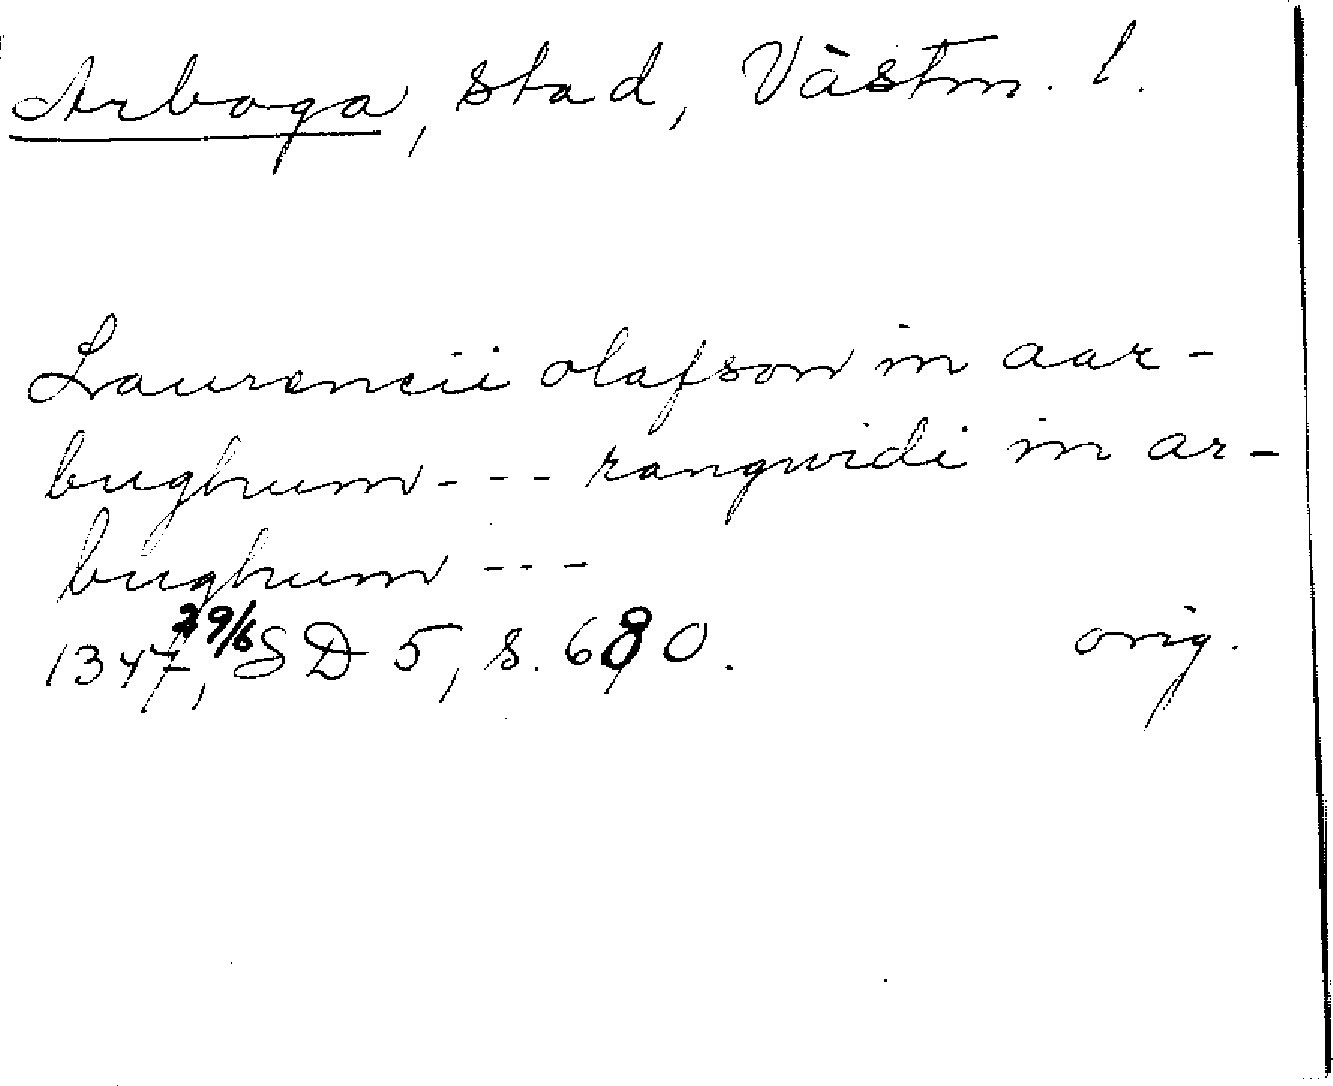 Arboga, stad, Västm. l.
Laurencii olafson in aar-
bughum - - - rangwidi in ar-
bughum - - -
1347, 29/6 SD 5, s. 680. orig.